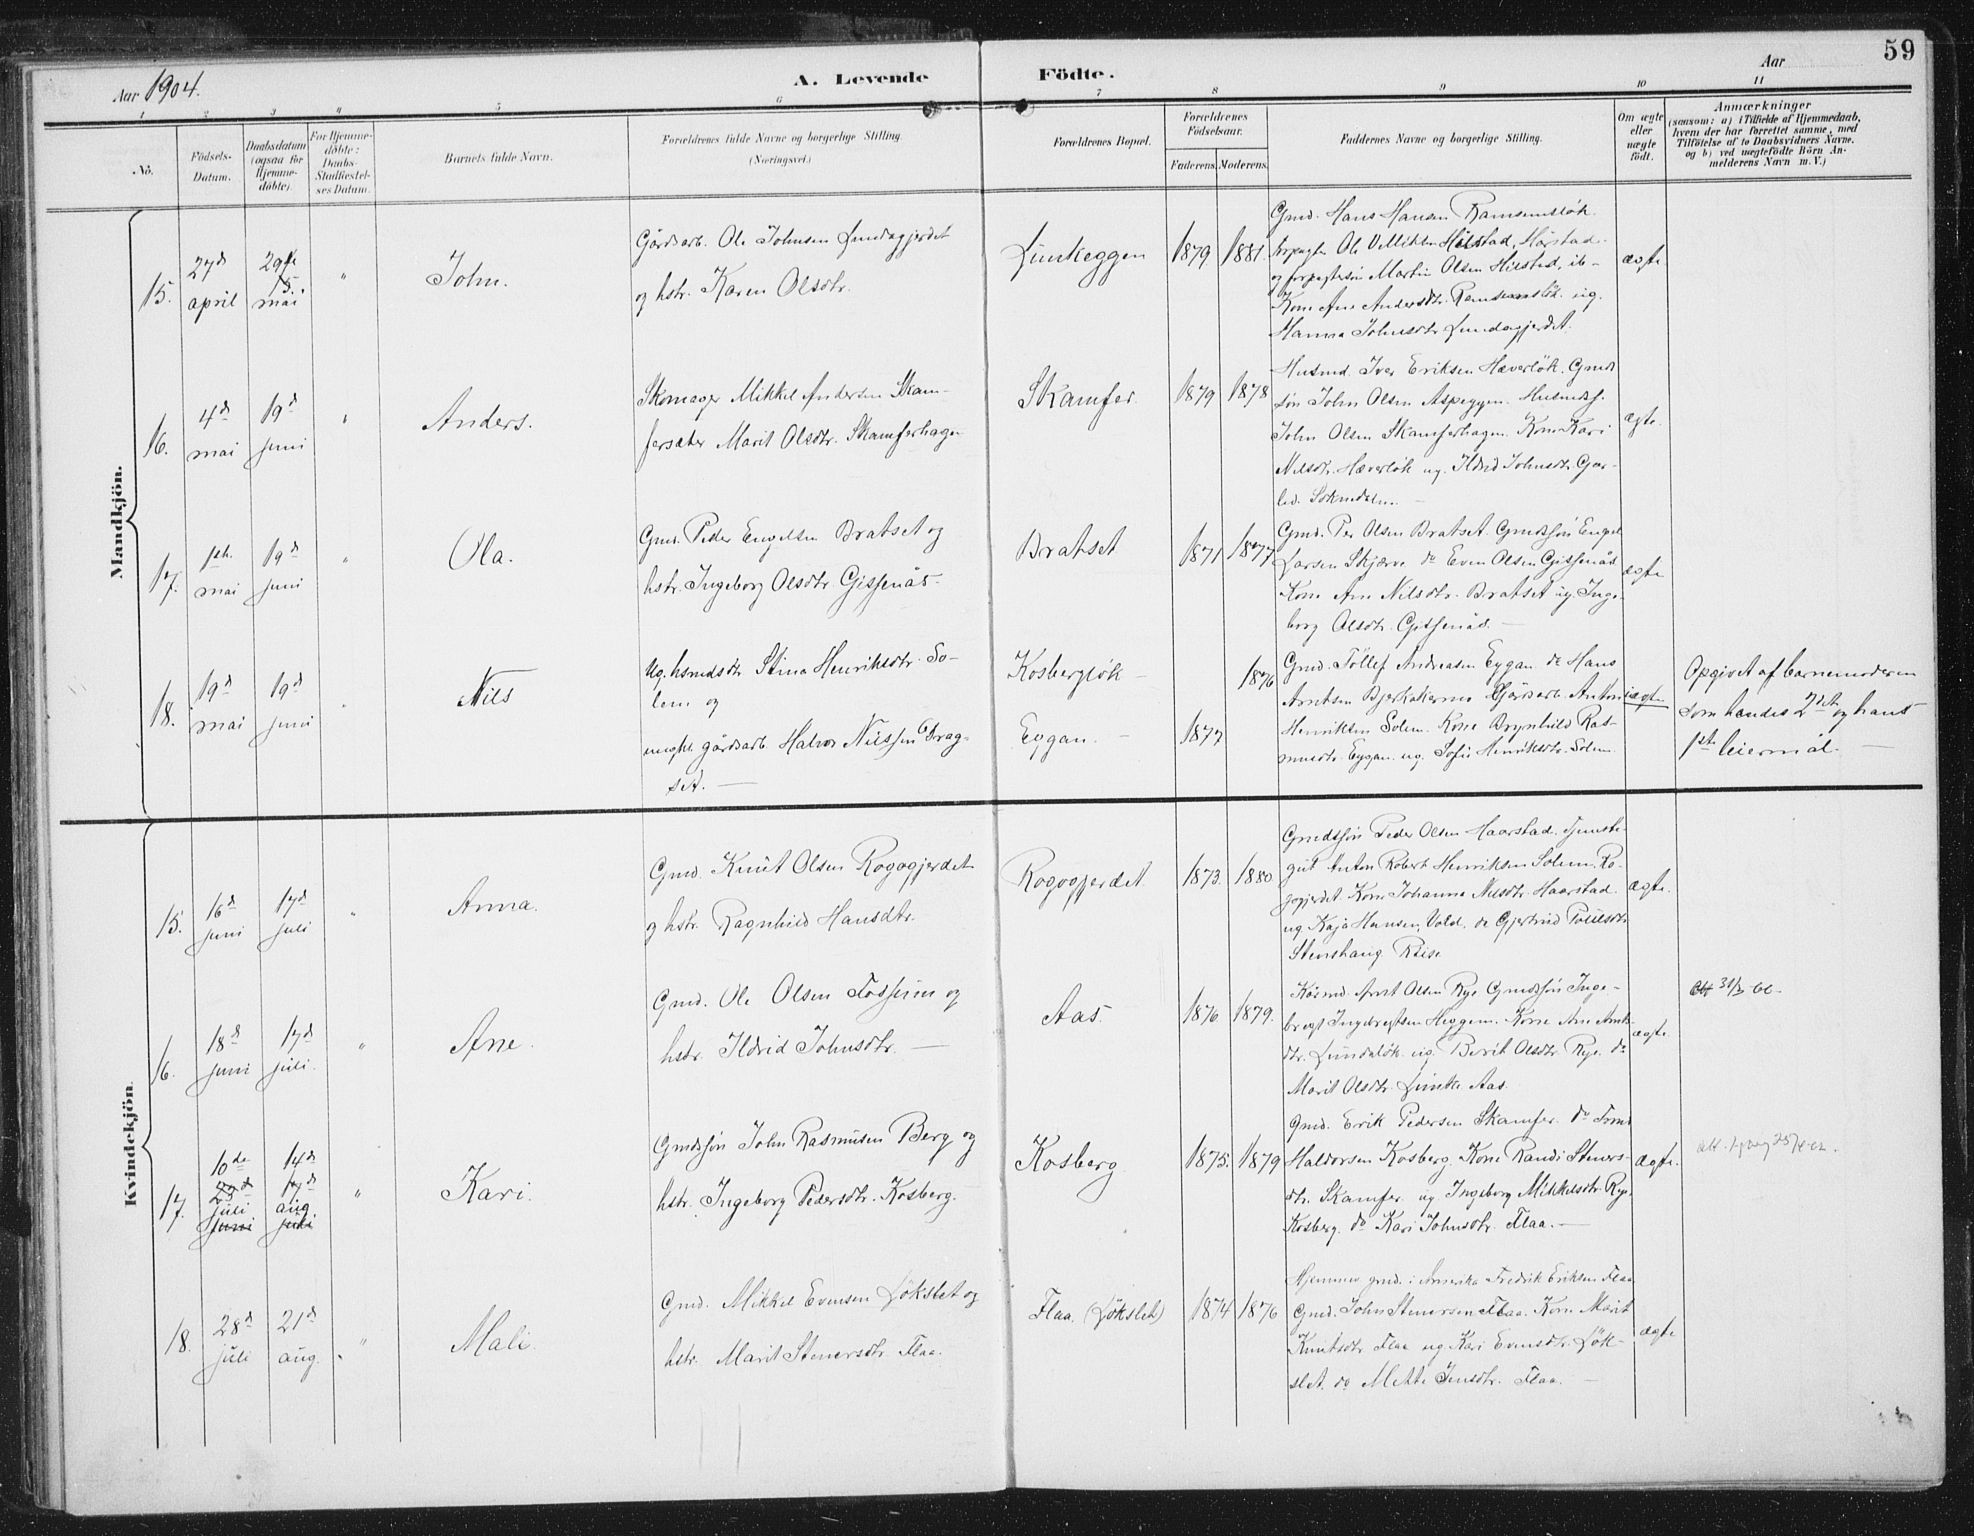 59
Aar 1904. A. Levende Födte. Aar
1 2 3 4 5 6 7 8 9 10 11
No.
Födsels-
Datum.
Daabsdatum
(ogsaa for
Hjemme-
döbte).
For Hjemme-
döbte:
Daabs-
Stadfæstel-
ses Datum.
Barnets fulde Navn.
Forældrenes fulde Navne og borgerlige Stilling.
(Næringsvei.)
Forældrenes Bopæl.
Forældrenes
Födselsaar.
Faderens. Moderens.
Faddernes Navne og borgerlige Stilling.
Om ægte
eller
uægte
födt.
Anmærkninger
(saasom: a) i Tilfælde af Hjemmedaab,
hvem der har forrettet samme, med
Tilföielse af to Daabsvidners Navne.
og b) ved uægtefödte Börn An-
melderens Navn m. V.)
Mandkjön.
15.
27d
april
29de
mai
"
John.
Gårdsarb. Ole Johnsen Lundagjerdet
og hstr. Karen Olsdtr.
Lunkeggen
1879. 1881.
Gmd. Hans Hansen Ramsemsløk
Ole Hilstad, Harstad.
og forpagtersøn Martin Olsen Hilstad, ib-
Kone Ane Andersdtr. Ramsemsløk ug.
Hanna Johnsdtr Lundagjerdet.
ægte
16.
4d
mai
19d
juni
"
Anders.
Skomager Mikkel Andersen Skam-
fersæter Marit Olsdtr. Skamferhagen
Skamfer
1879 1878
Husmd Iver Eriksen Hæverløk. Gmds
søn John Olsen Aspeggen. Husmdsf.
John Olsen Skamferhagen. Kone Kari
Nilsdtr. Hæverløk ug. Ildrid Johnsdtr. Gar-
lid. Soknedalen. —
ægte.
17.
1ste
mai
19d
juni
"
Ola.
Gmd. Peder Engelsen Bratset og
hstr. Ingeborg Olsdtr. Gisnås.
Bratset
1871 1877
Gmd. Per Olsen Bratset. Gmdssøn Engel
Larsen Skjærve do Even Olsen Gisnås
Kone Ane Nilsdtr. Bratset ug. Inge-
borg Olsdtr. Gisnås. —
ægte
18.
19d
mai
19d
juni
Nils
Ug. hsmdsdtr Stina Henriksdtr. So-
lem og
ungkl. gårdsarb. Halvor Nilssen Drag-
set. —
Kosbergløk —
Eggan. —
1876
1877
Gmd. Tøllef Andreasen Eggan do Hans
Arntsen Bjerkakerne Gårdsarb. Anton
Henriksen Solem. Kone Brynhild Ras-
musdtr. Eggan. ug. Sofie Henriksdtr. Solem
uægte
Opgivet af barnemoderen
som hendes 2det og hans
1ste leiermål. —
Kvindekjön.
15.
16d
juni
17d
juli
"
Anna.
Gmd. Knut Olsen Rogogjerdet
og hstr. Ragnhild Hansdtr.
Rogogjerdet
1873. 1880
Gmdssøn Peder Olsen Haarstad. Tjeneste-
gut Anton Robert Henriksen Solem. Ro-
gogjerdet. Kone Johanna Nilsdtr. Haarstad
ug Kaja Hansen, Vold, do Gjertrud Poulsdtr
Stenshaug Riise
ægte.
16.
18d
juni
17d
juli.
"
Ane.
Gmd. Ole Olsen Fossum og
hstr. Ildrid Johnsdtr. —
Aas.
1876 1879.
Arnt Olsen Rye Gmdssøn Inge-
bregt Ingebregtsen Heggem. Kone Ane Arnts-
dtr. Lundaløk ug. Berit Olsdtr. Rye. do
Marit Olsdtr. Lunke Aas.
ægte.
31/3 60.
17.
10de
23d
juli
juni
14d
17d
aug.
juli
"
Kari.
Gmdssøn John Rasmusen Berg og
hstr. Ingeborg Pedersdtr. Kosberg.
Kosberg
1875. 1879
Gmd. Erik Pedersen Skamfer. do
Haldorsen Kosberg. Kone Randi Steners-
dtr. Skamfer ug Ingeborg Mikkelsdtr. Rye
Kosberg. do Kari Johnsdtr. Flaa. —
ægte.
18.
28d
juli
21d
aug.
"
Mali.
Gmd. Mikkel Evensen Løkslet og
hstr. Marit Stenersdtr Flaa.
Flaa. (Løkslet)
1874 1876
Hjemmev. gmd. i Amerika Fredrik Eriksen Flaa
Gmd. John Stenersen Flaa. Kone Marit
Knutsdtr Flaa ug Kari Evensdtr. Løk-
slet. do Mette Jensdtr. Flaa. —
ægte